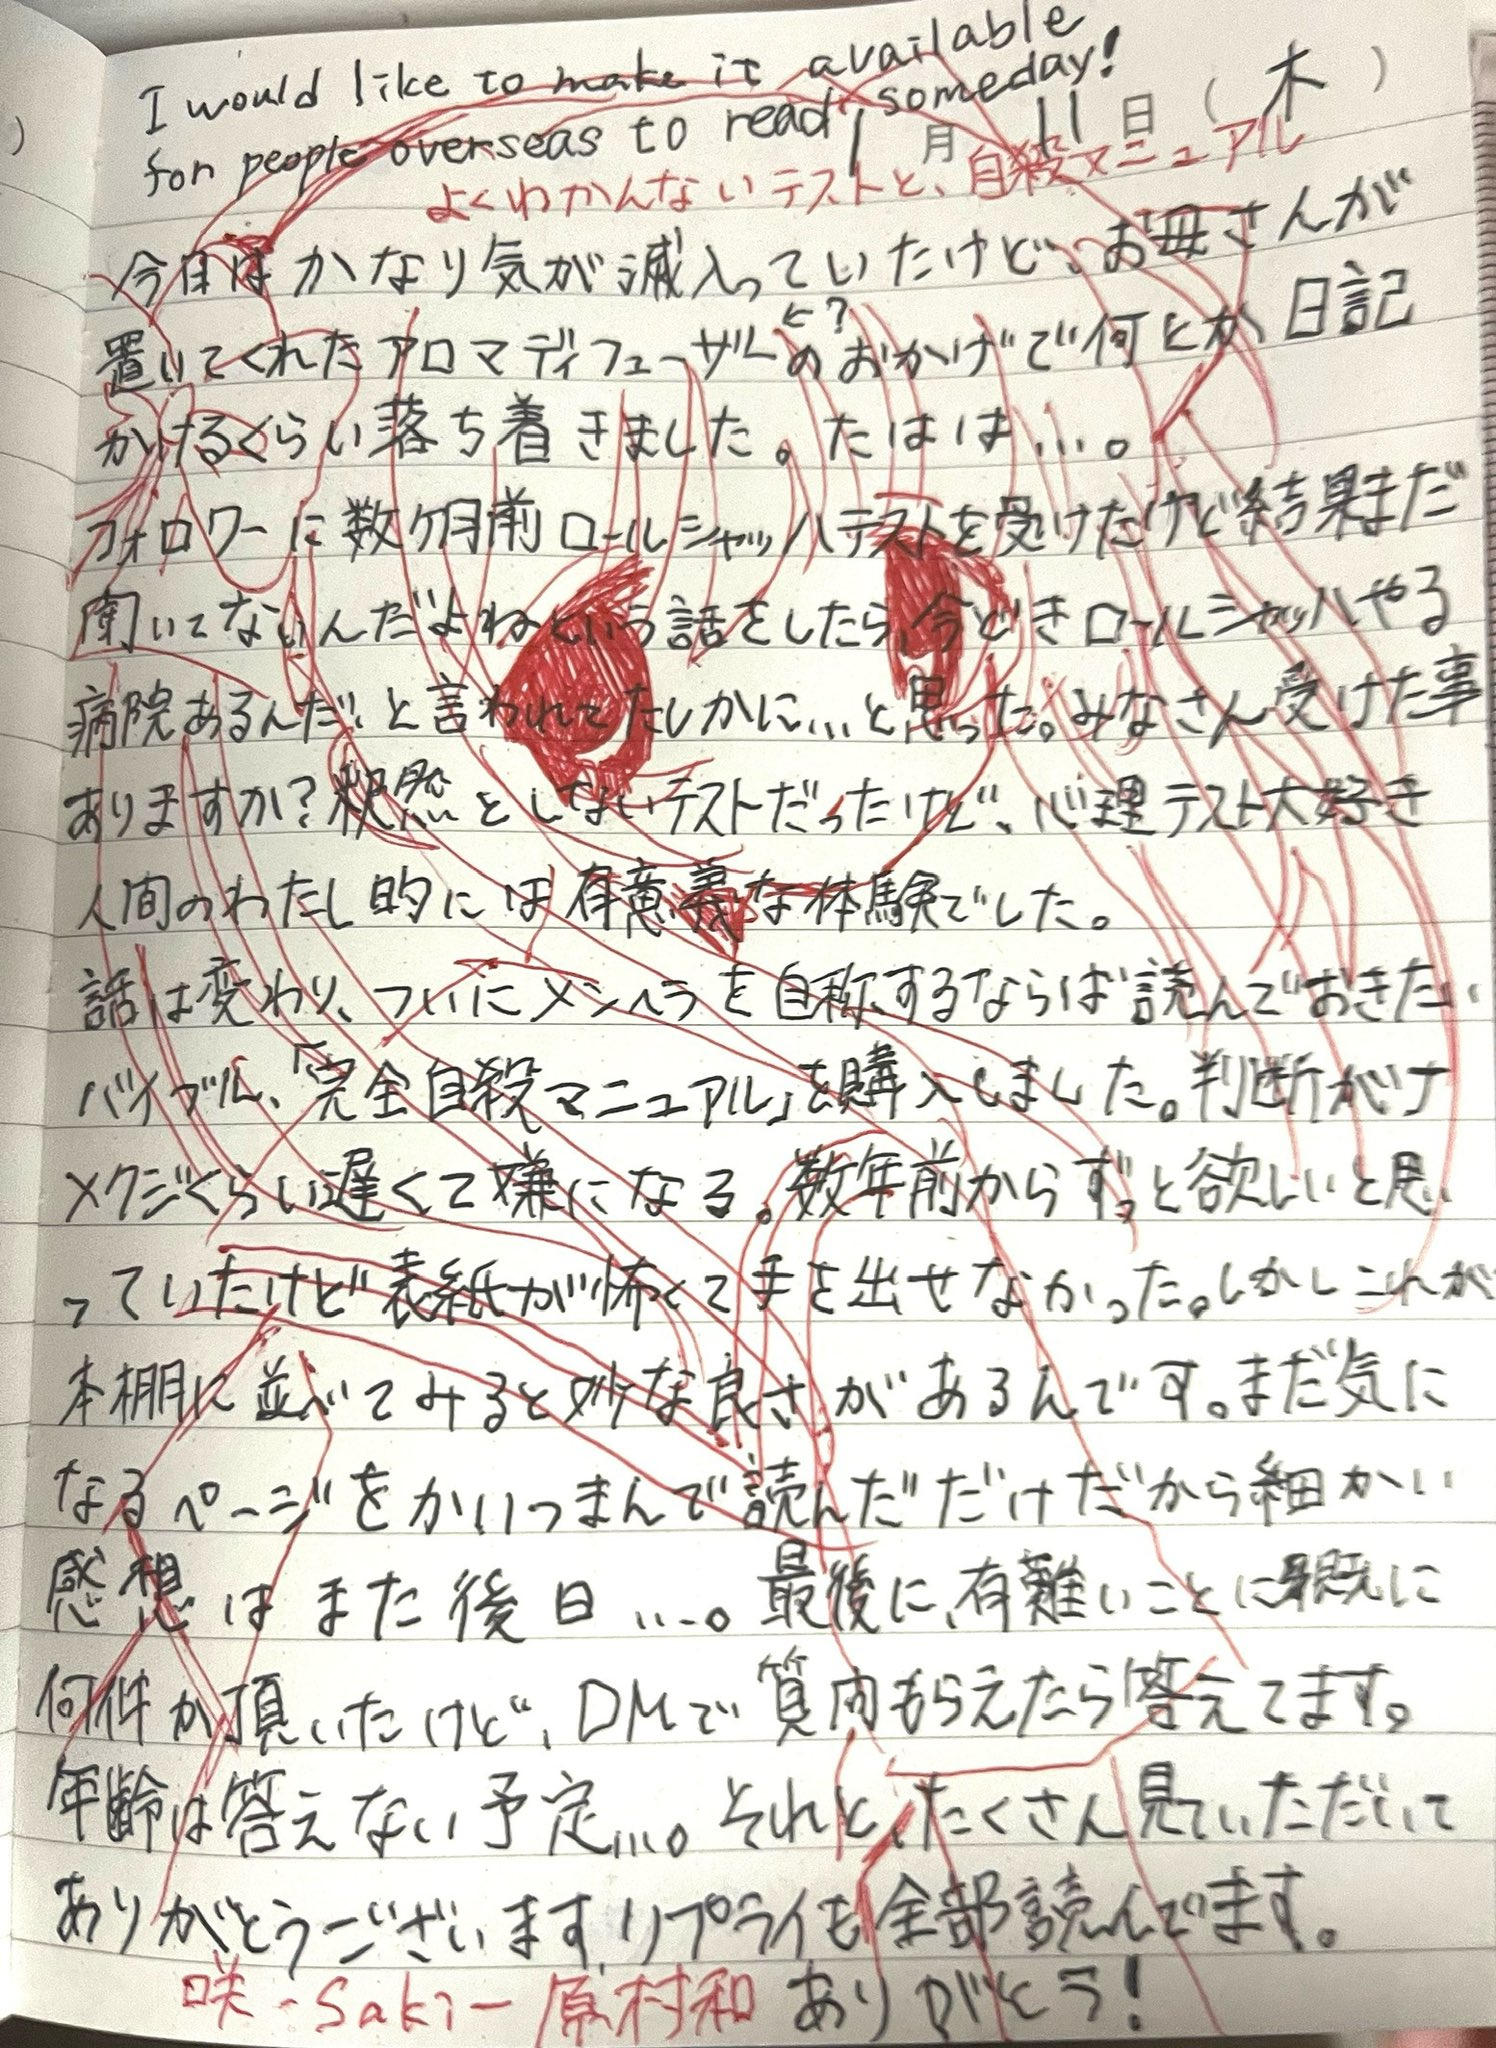 I would like to make it available
for people overseas to read someday!
1月11日(木)
よくわかんないテストと、自殺マニュアル
今日はかなり気が滅入っていたけど、お母さんが
置いてくれたアロマディフューザー←?のおかげで何とか日記
かけるくらい落ち着きました。たはは…。
フォロワーに数ヶ月前ロールシャッハテストを受けたけど結果まだ
聞いてないんだよねという話をしたら、今どきロールシャッハやる
病院あるんだ、と言われてたしかに…と思った。みなさん受けた事
ありますか?釈然としないテストだったけど、心理テスト大好き
人間のわたし的には有意義な体験でした。
話は変わり、ついにメンヘラを自称するならば読んでおきたい
バイブル、「完全自殺マニュアル」を購入しました。判断がナ
メクジくらい遅くて嫌になる。数年前からずっと欲しいと思
っていたけど表紙が怖くて手を出せなかった。しかしこれが
本棚に並べてみると妙な良さがあるんです。まだ気に
なるページをかいつまんで読んだだけだから細かい
感想はまた後日…。最後に、有難いことに既に
何件か頂いたけど、DMで質問もらえたら答えてます。
年齢は答えない予定…。それと、たくさん見ていただいて
ありがとうございます。リプライも全部読んでます。
咲-Saki-原村和 ありがとう!